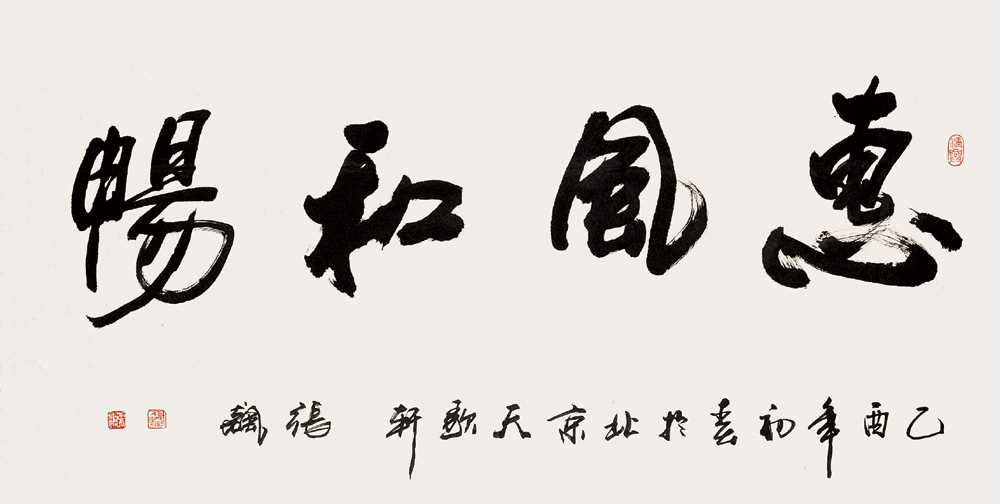 惠風和暢
乙酉年初春於北京天歌軒 張飚